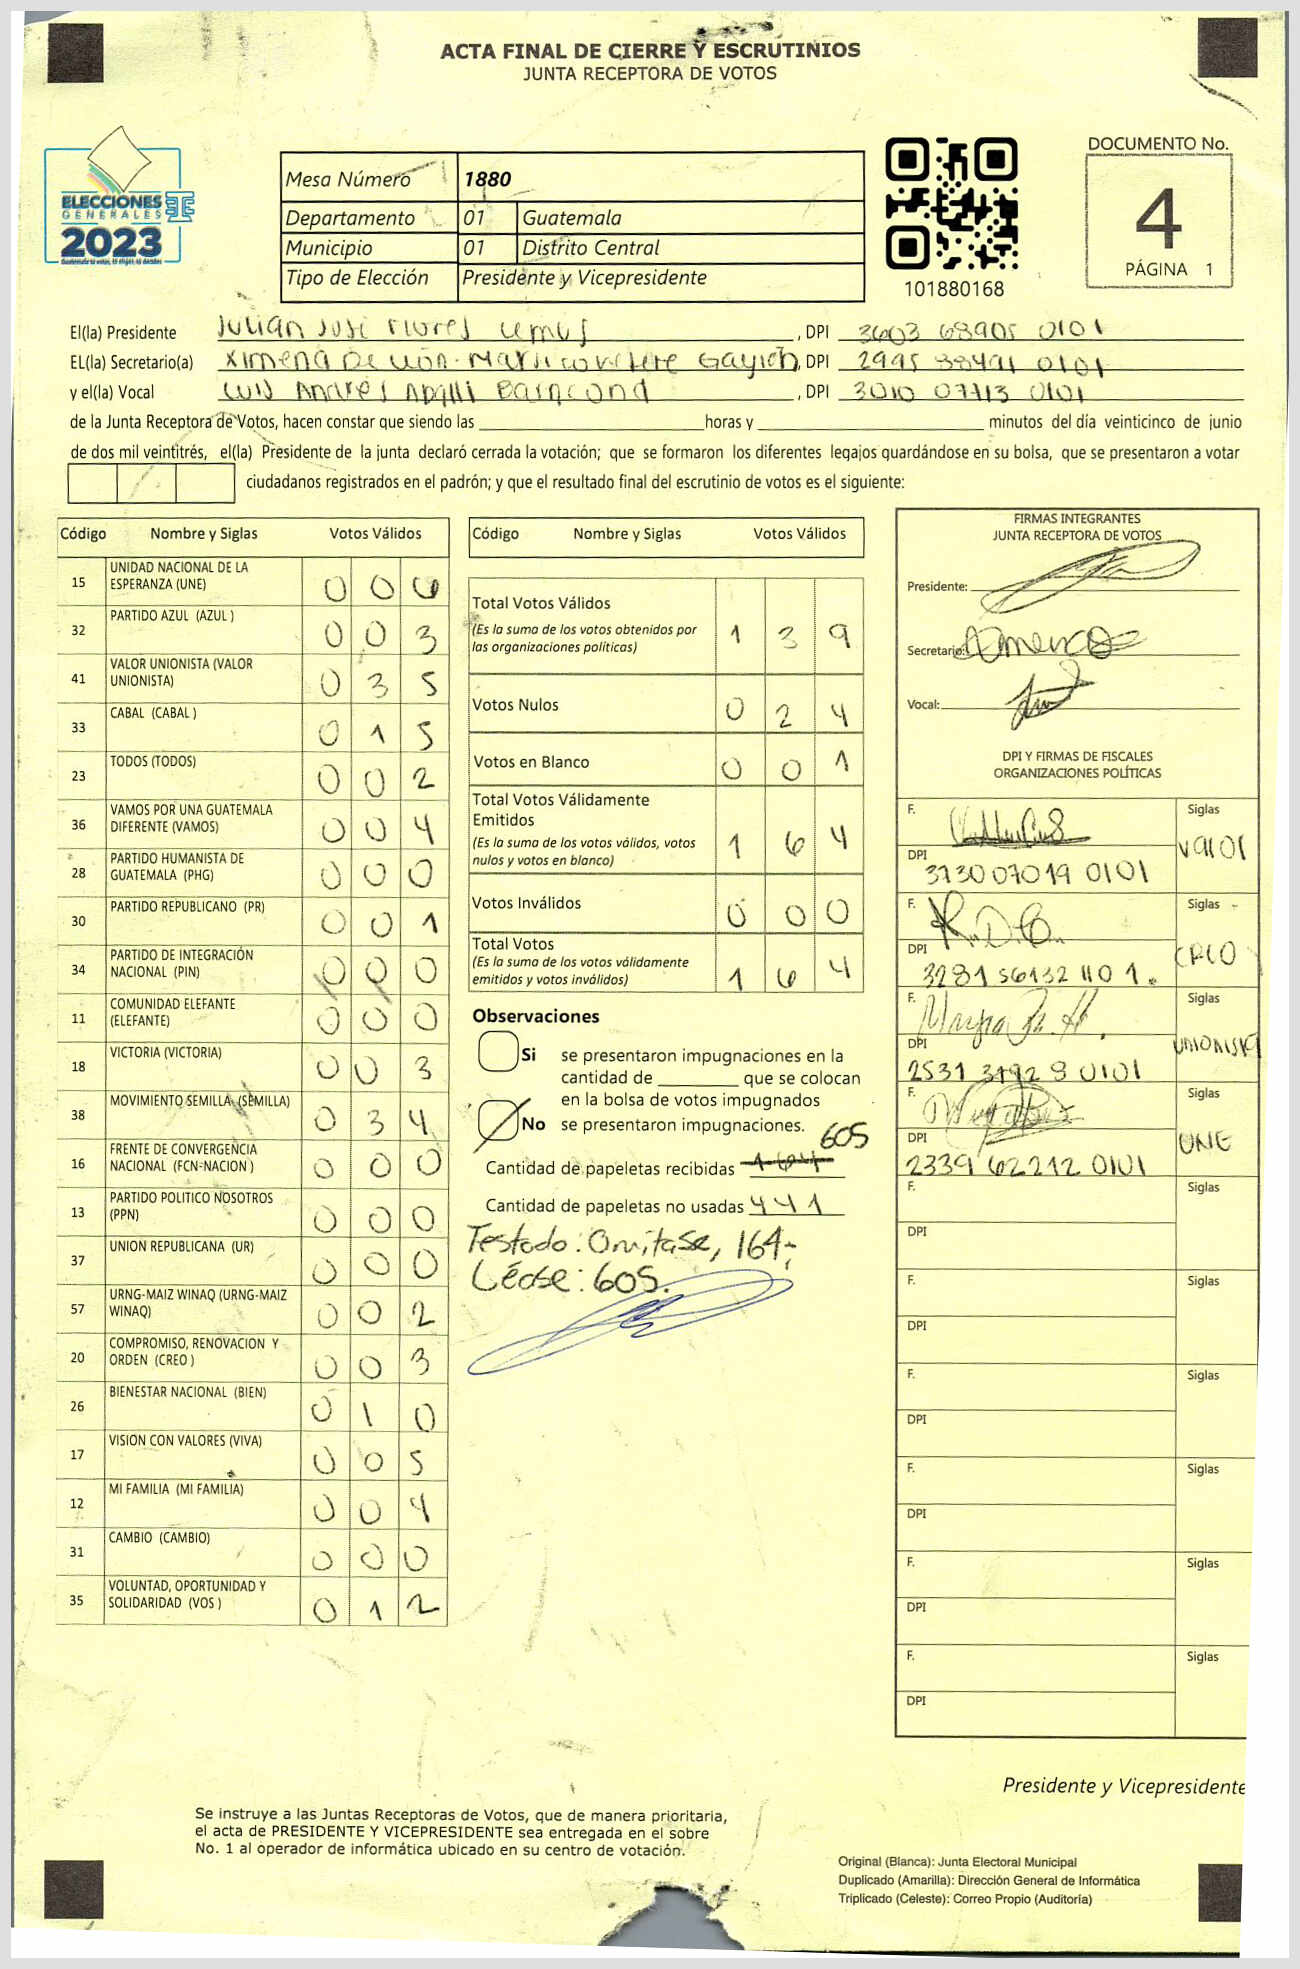 ACTA FINAL DE CIERRE Y ESCRUTINIOS
JUNTA RECEPTORA DE VOTOS
ELECCIONES
GENERALES
2023
Mesa Número 1880
Departamento 01 Guatemala
Municipio 01 Distrito Central
Tipo de Elección Presidente y Vicepresidente
101880168
DOCUMENTO No.
4
PÁGINA 1
El(la) Presidente Julian José Flores Lemus , DPI 3603 68905 0101
EL(la) Secretario(a) Ximena De León , DPI 2995 38491 0101
y el(la) Vocal Luis Andrés , DPI 3010 07713 0101
de la Junta Receptora de Votos, hacen constar que siendo las horas y minutos del día veinticinco de junio
de dos mil veintitrés, el(la) Presidente de la junta declaró cerrada la votación; que se formaron los diferentes legajos guardándose en su bolsa, que se presentaron a votar
ciudadanos registrados en el padrón; y que el resultado final del escrutinio de votos es el siguiente:
Código Nombre y Siglas Votos Válidos
15 UNIDAD NACIONAL DE LA ESPERANZA (UNE) 0 0 6
32 PARTIDO AZUL (AZUL ) 0 0 3
41 VALOR UNIONISTA (VALOR UNIONISTA) 0 3 5
33 CABAL (CABAL ) 0 1 5
23 TODOS (TODOS) 0 0 2
36 VAMOS POR UNA GUATEMALA DIFERENTE (VAMOS) 0 0 4
28 PARTIDO HUMANISTA DE GUATEMALA (PHG) 0 0 0
30 PARTIDO REPUBLICANO (PR) 0 0 1
34 PARTIDO DE INTEGRACIÓN NACIONAL (PIN) 0 0 0
11 COMUNIDAD ELEFANTE (ELEFANTE) 0 0 0
18 VICTORIA (VICTORIA) 0 0 3
38 MOVIMIENTO SEMILLA (SEMILLA) 0 3 4
16 FRENTE DE CONVERGENCIA NACIONAL (FCN-NACION ) 0 0 0
13 PARTIDO POLITICO NOSOTROS (PPN) 0 0 0
37 UNION REPUBLICANA (UR) 0 0 0
57 URNG-MAIZ WINAQ (URNG-MAIZ WINAQ) 0 0 2
20 COMPROMISO, RENOVACION Y ORDEN (CREO ) 0 0 3
26 BIENESTAR NACIONAL (BIEN) 0 1 0
17 VISION CON VALORES (VIVA) 0 0 5
12 MI FAMILIA (MI FAMILIA) 0 0 4
31 CAMBIO (CAMBIO) 0 0 0
35 VOLUNTAD, OPORTUNIDAD Y SOLIDARIDAD (VOS ) 0 1 2
Código Nombre y Siglas Votos Válidos
Total Votos Válidos 1 3 9
(Es la suma de los votos obtenidos por
las organizaciones políticas)
Votos Nulos 0 2 4
Votos en Blanco 0 0 1
Total Votos Válidamente
Emitidos 1 6 4
(Es la suma de los votos válidos, votos
nulos y votos en blanco)
Votos Inválidos 0 0 0
Total Votos
(Es la suma de los votos válidamente
emitidos y votos inválidos) 1 6 4
Observaciones
Si se presentaron impugnaciones en la
cantidad de que se colocan
en la bolsa de votos impugnados
No se presentaron impugnaciones.
Cantidad de papeletas recibidas 164 605
Cantidad de papeletas no usadas 441
Testado: Omitase, 164-;
Léase: 605.
FIRMAS INTEGRANTES
JUNTA RECEPTORA DE VOTOS
Presidente:
Secretario:
Vocal:
DPI Y FIRMAS DE FISCALES
ORGANIZACIONES POLÍTICAS
F. Siglas
DPI 373007019 0101 Valor
F. Siglas
DPI 3281 56132 1101. CREO
F. Siglas
DPI 2531 3792 8 0101 UNIONISTA
F. Siglas
DPI 2339 62212 0101 UNE
F. Siglas
DPI
F. Siglas
DPI
F. Siglas
DPI
F. Siglas
DPI
F. Siglas
DPI
F. Siglas
DPI
Presidente y Vicepresidente
Se instruye a las Juntas Receptoras de Votos, que de manera prioritaria,
el acta de PRESIDENTE Y VICEPRESIDENTE sea entregada en el sobre
No. 1 al operador de informática ubicado en su centro de votación.
Original (Blanca): Junta Electoral Municipal
Duplicado (Amarilla): Dirección General de Informática
Triplicado (Celeste): Correo Propio (Auditoría)